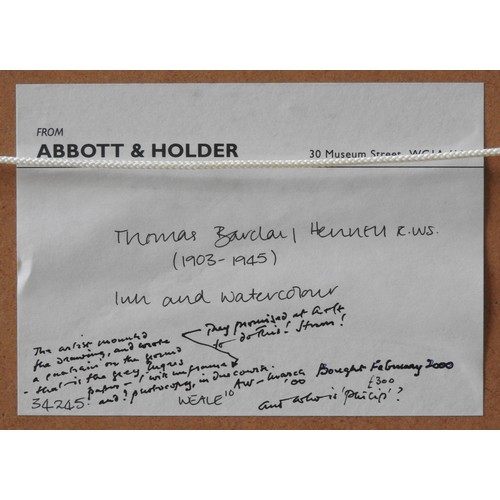 FROM
ABBOTT & HOLDER
30 Museum Street, WC1A
Thomas Barclay Hennell R.W.S.
(1903-1945)
Ink and watercolour
The artist mounted
the drawing, and wrote
a quatrain on the mound
- that is the grey Ingres
paper - I will unframe
and photocopy, in due course.
They promised at
to do this!
34245
WEALE
Bought February 2000
£300
And who is 'Philip'?